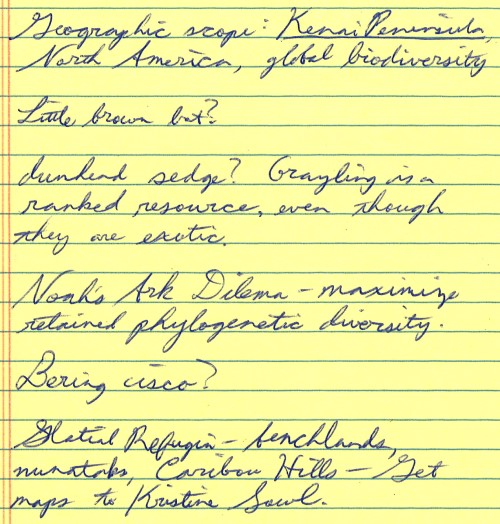 Geographic scope: Kenai Peninsula,
North America, global biodiversity
Little brown bat?
dunhead sedge? Grayling is a
ranked resource, even though
they are exotic.
Noah's Ark Dilema - maximize
retained phylogenetic diversity.
Bering cisco?
Glatial Refugia - benchlands,
nunataks, Caribou Hills - Get
maps to Kristine Sowl.